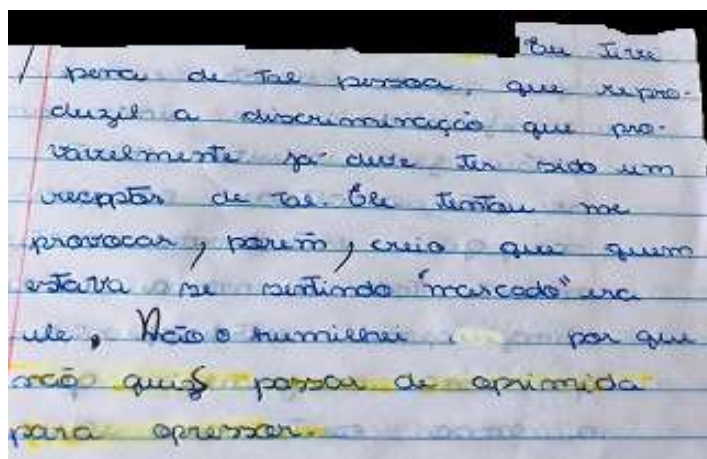 Eu tive
pena de tal pessoa, que repro-
duziu a discriminação que pro-
vavelmente já deve ter sido um
receptor de tal. Ele tentou me
provocar, porém, creio que quem
estava se sentindo "marcado" era
ele, Não o humilhei. por que
não quis passar de oprimida
para opressor.